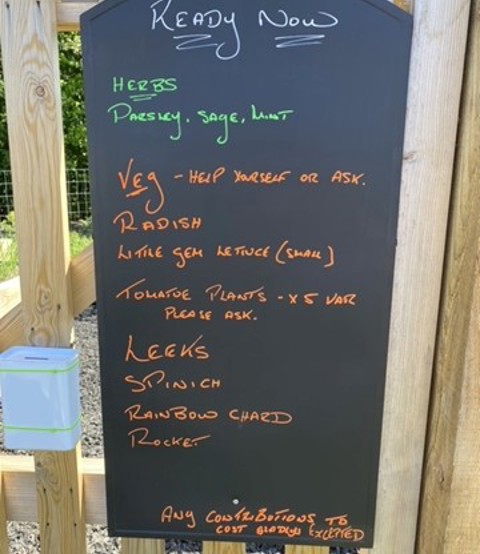 READY NOW
HERBS
PARSLEY, SAGE, MINT
VEG - HELP YOURSELF OR ASK.
RADISH
LITTLE GEM LETTUCE (SMALL)
TOMATOE PLANTS - X 5 VAR
PLEASE ASK.
LEEKS
SPINICH
RAINBOW CHARD
ROCKET
ANY CONTRIBUTIONS TO
COST GLADLY EXCEPTED